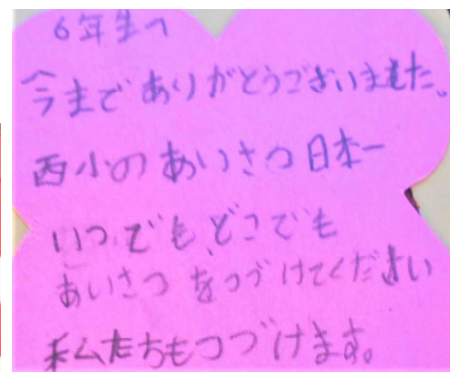 6年生へ
今までありがとうございました。
西小のあいさつ日本一
いつでも、どこでも
あいさつをつづけてください
私たちもつづけます。